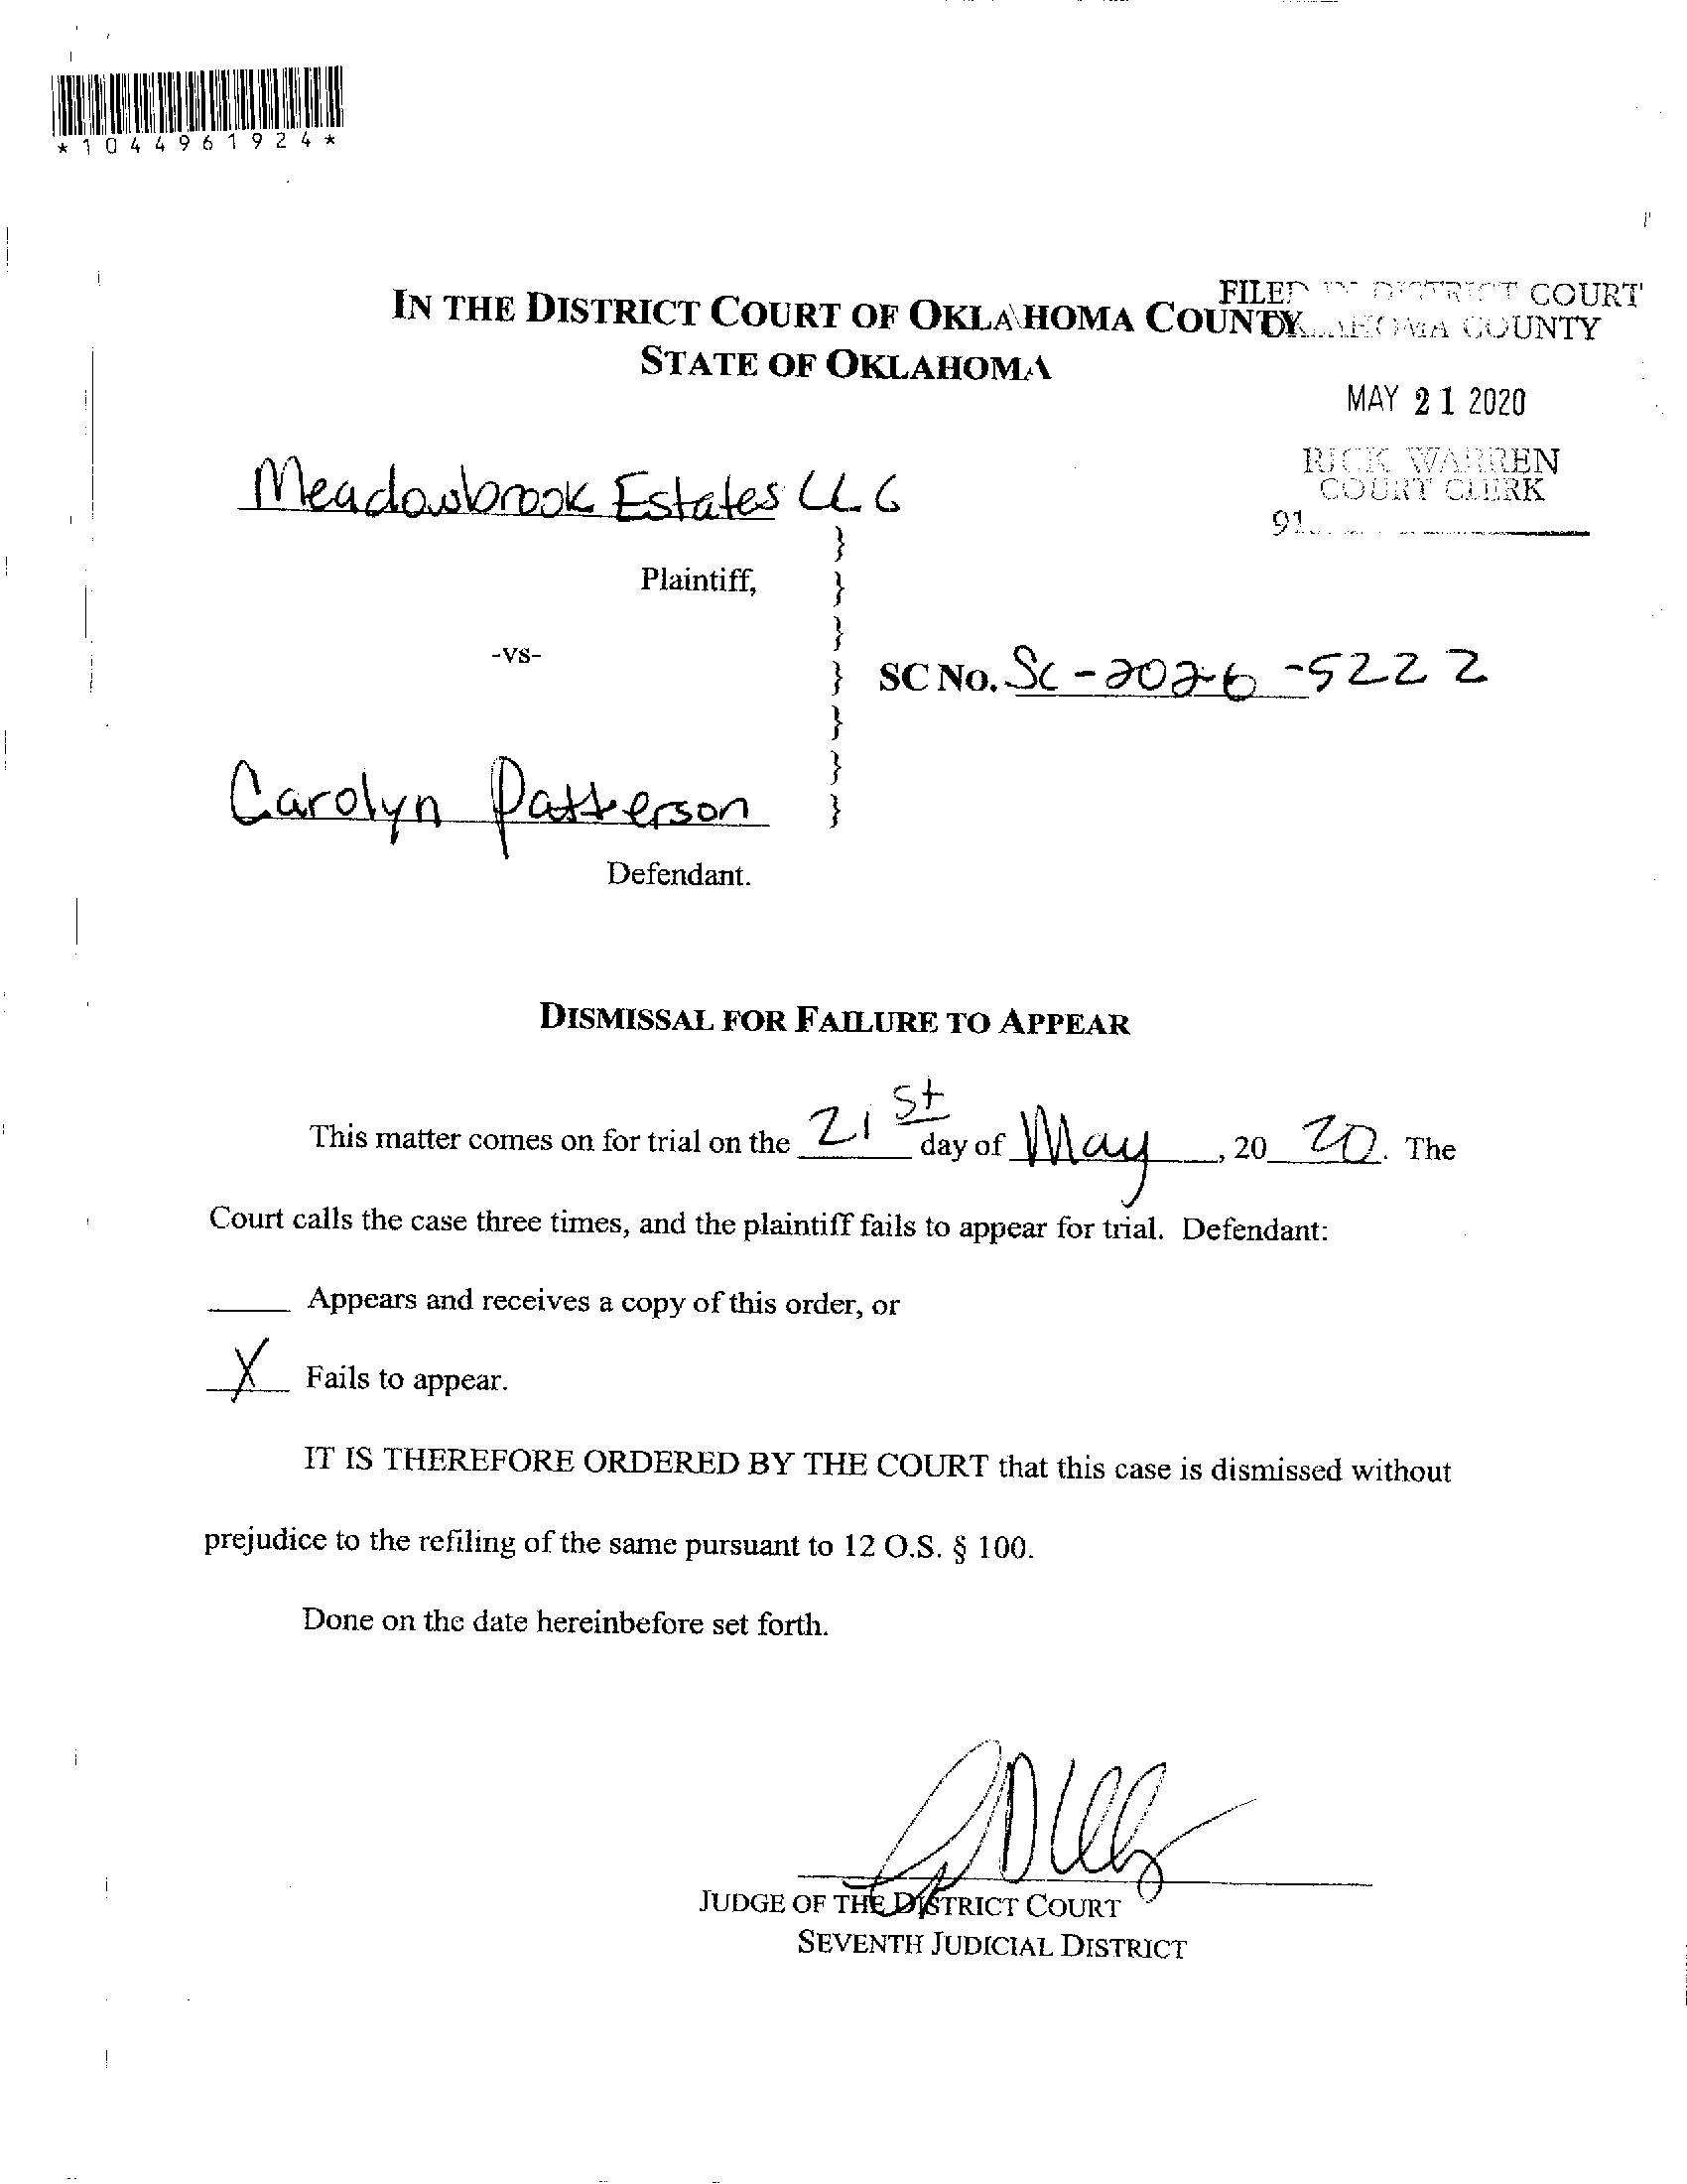 *1044961924*
IN THE DISTRICT COURT OF OKLAHOMA COUNTY
STATE OF OKLAHOMA
FILED IN DISTRICT COURT
OKLAHOMA COUNTY
MAY 21 2020
RICK WARREN
COURT CLERK
91
Meadowbrook Estates LLC
Plaintiff,
-vs-
SC NO. SC-2020-5222
Carolyn Patterson
Defendant.
DISMISSAL FOR FAILURE TO APPEAR
This matter comes on for trial on the 21st day of May, 2020. The
Court calls the case three times, and the plaintiff fails to appear for trial. Defendant:
Appears and receives a copy of this order, or
X Fails to appear.
IT IS THEREFORE ORDERED BY THE COURT that this case is dismissed without
prejudice to the refiling of the same pursuant to 12 O.S. § 100.
Done on the date hereinbefore set forth.
JUDGE OF THE DISTRICT COURT
SEVENTH JUDICIAL DISTRICT